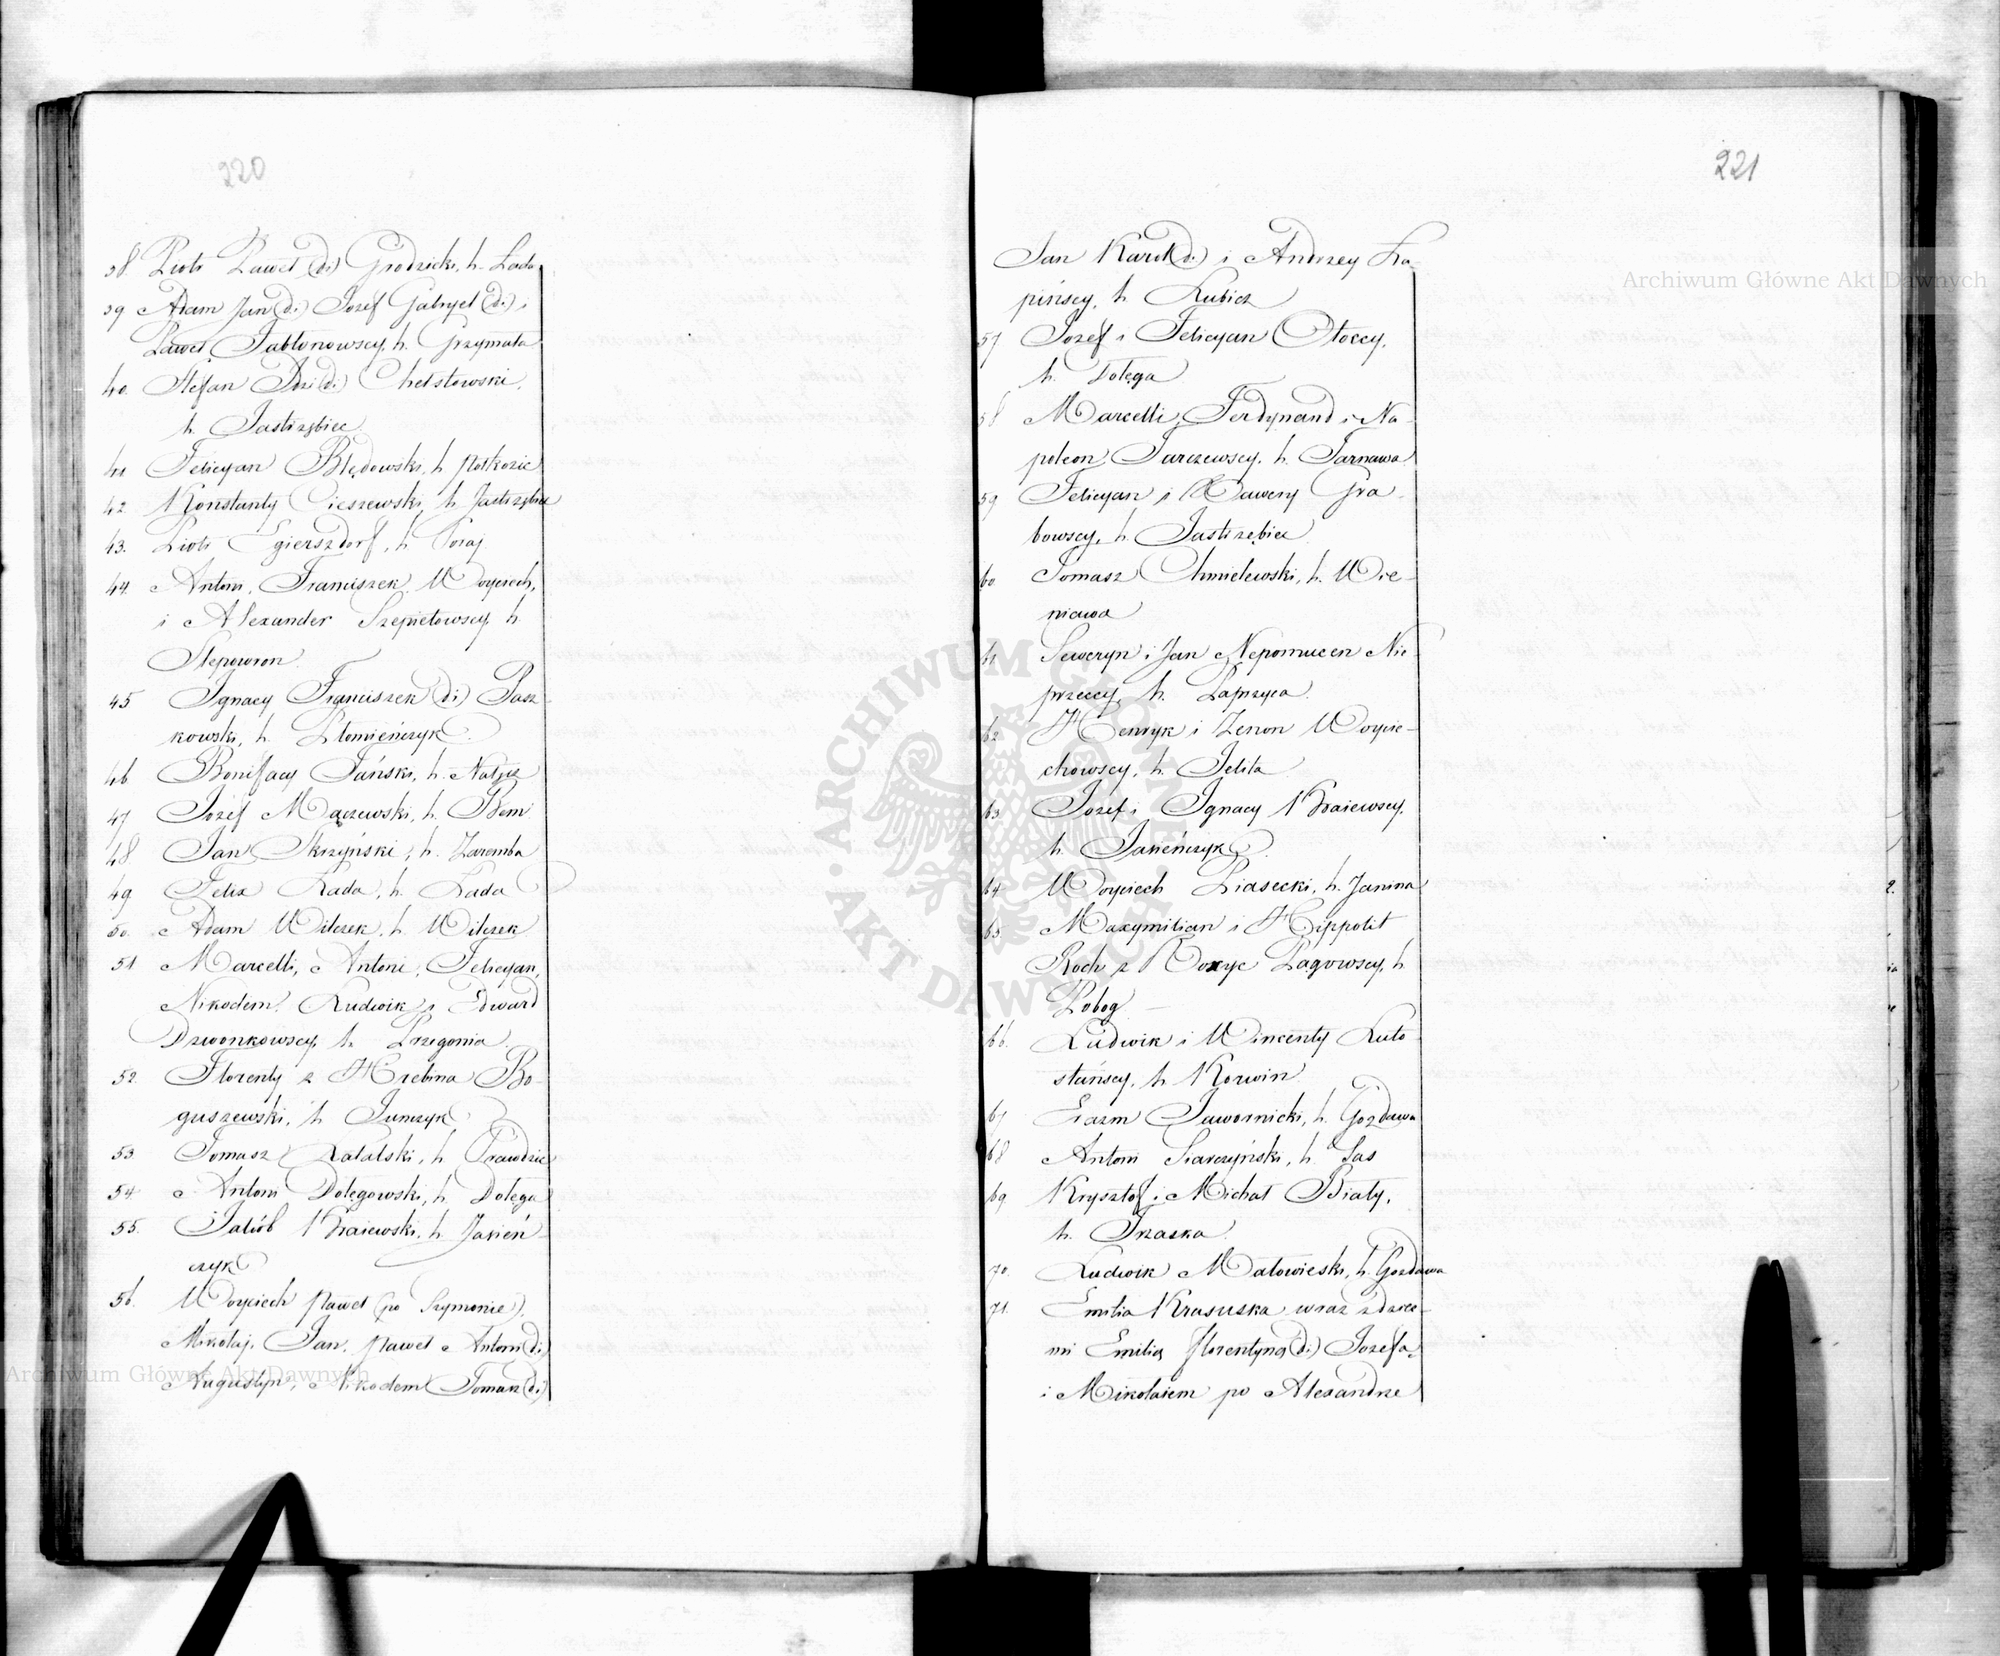 220
38 Piotr Paweł (di) Grodzicki, h. Łada
39 Adam Jan (di) Jozef Gabryel (di) i
Paweł Jabłonowscy, h. Grzymała
40. Stefan Idzi (di) Chełstowski,
h. Jastrzębiec
41 Felicyan Błędowski, h. Półkozic
42 Konstanty Cieszewski, h. Jastrzębiec
43. Piotr Egierszdorf, h. Poraj
44. Antoni, Franciszek, Woyciech,
i Alexander Szepietowscy, h.
Slepowron
45 Ignacy Franciszek (di) Pasz-
kowski, h. Płomieńczyk
46 Bonifacy Jański, h. Nałęcz
47 Józef Mączewski, h. Bem
48 Jan Skrzyński, h. Zaremba
49 Felix Łada, h. Łada
50. Adam Wilczek, h. Wilczek
51 Marcelli, Antoni, Felicyan,
Nikodem, Ludwik i Edward
Dzwonkowscy, h. Przegonia
52. Florenty z Hrebina Bo-
guszewski, h. Junczyk
53. Tomasz Zalalski, h. Prawdzic
54 Antoni Dołęgowski, h. Dołęga
55. Jakób Kraiewski, h. Jasień-
czyk
56. Woyciech Paweł (po Szymonie),
Mikołaj, Jan, Paweł Antoni (di)
Augustyn, Nikodem Tomasz (di)
221
Jan Karol (di) i Andrzey Ła-
pińscy, h. Lubicz
57 Jozef i Felicyan Otoccy,
h. Dołęga
58 Marcelli, Ferdynand i Na-
poleon Jurczewscy, h. Tarnawa
59 Felicyan i Xawery Gra-
bowscy, h. Jastrzębiec
60 Tomasz Chmielewski, h. Wie-
niawa
61 Seweryn i Jan Nepomucen Nie-
przeccy, h. Paprzyca
62 Henryk i Zenon Woycie-
chowscy, h. Jelita
63 Jozef i Ignacy Kraiewscy,
h. Jasieńczyk
64 Woyciech Piasecki, h. Janina
65 Maxymilian i Hippolit
Roch z Roxyc Pągowscy, h.
Pobog
66. Ludwik i Wincenty Luto-
stańscy, h. Korwin
67 Erazm Jawornicki, h. Gozdawa
68 Antoni Siarczyński, h. Sas
69 Krysztof i Michał Biały,
h. Trzaska
70. Ludwik Małowieski, h. Gozdawa
71. Emilia Krasuska wraz z dzieć-
mi Emilią Florentyną (di) Jozefą,
i Mikołaiem po Alexandrze
Archiwum Główne Akt Dawnych
Archiwum Główne Akt Dawnych
ARCHIWUM GŁÓWNE AKT DAWNYCH